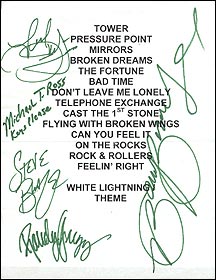 TOWER
PRESSURE POINT
MIRRORS
BROKEN DREAMS
THE FORTUNE
BAD TIME
DON'T LEAVE ME LONELY
TELEPHONE EXCHANGE
CAST THE 1ST STONE
FLYING WITH BROKEN WINGS
CAN YOU FEEL IT
ON THE ROCKS
ROCK & ROLLERS
FEELIN' RIGHT
WHITE LIGHTNING /
THEME
Michael T. Ross
Keys Please
STEVE